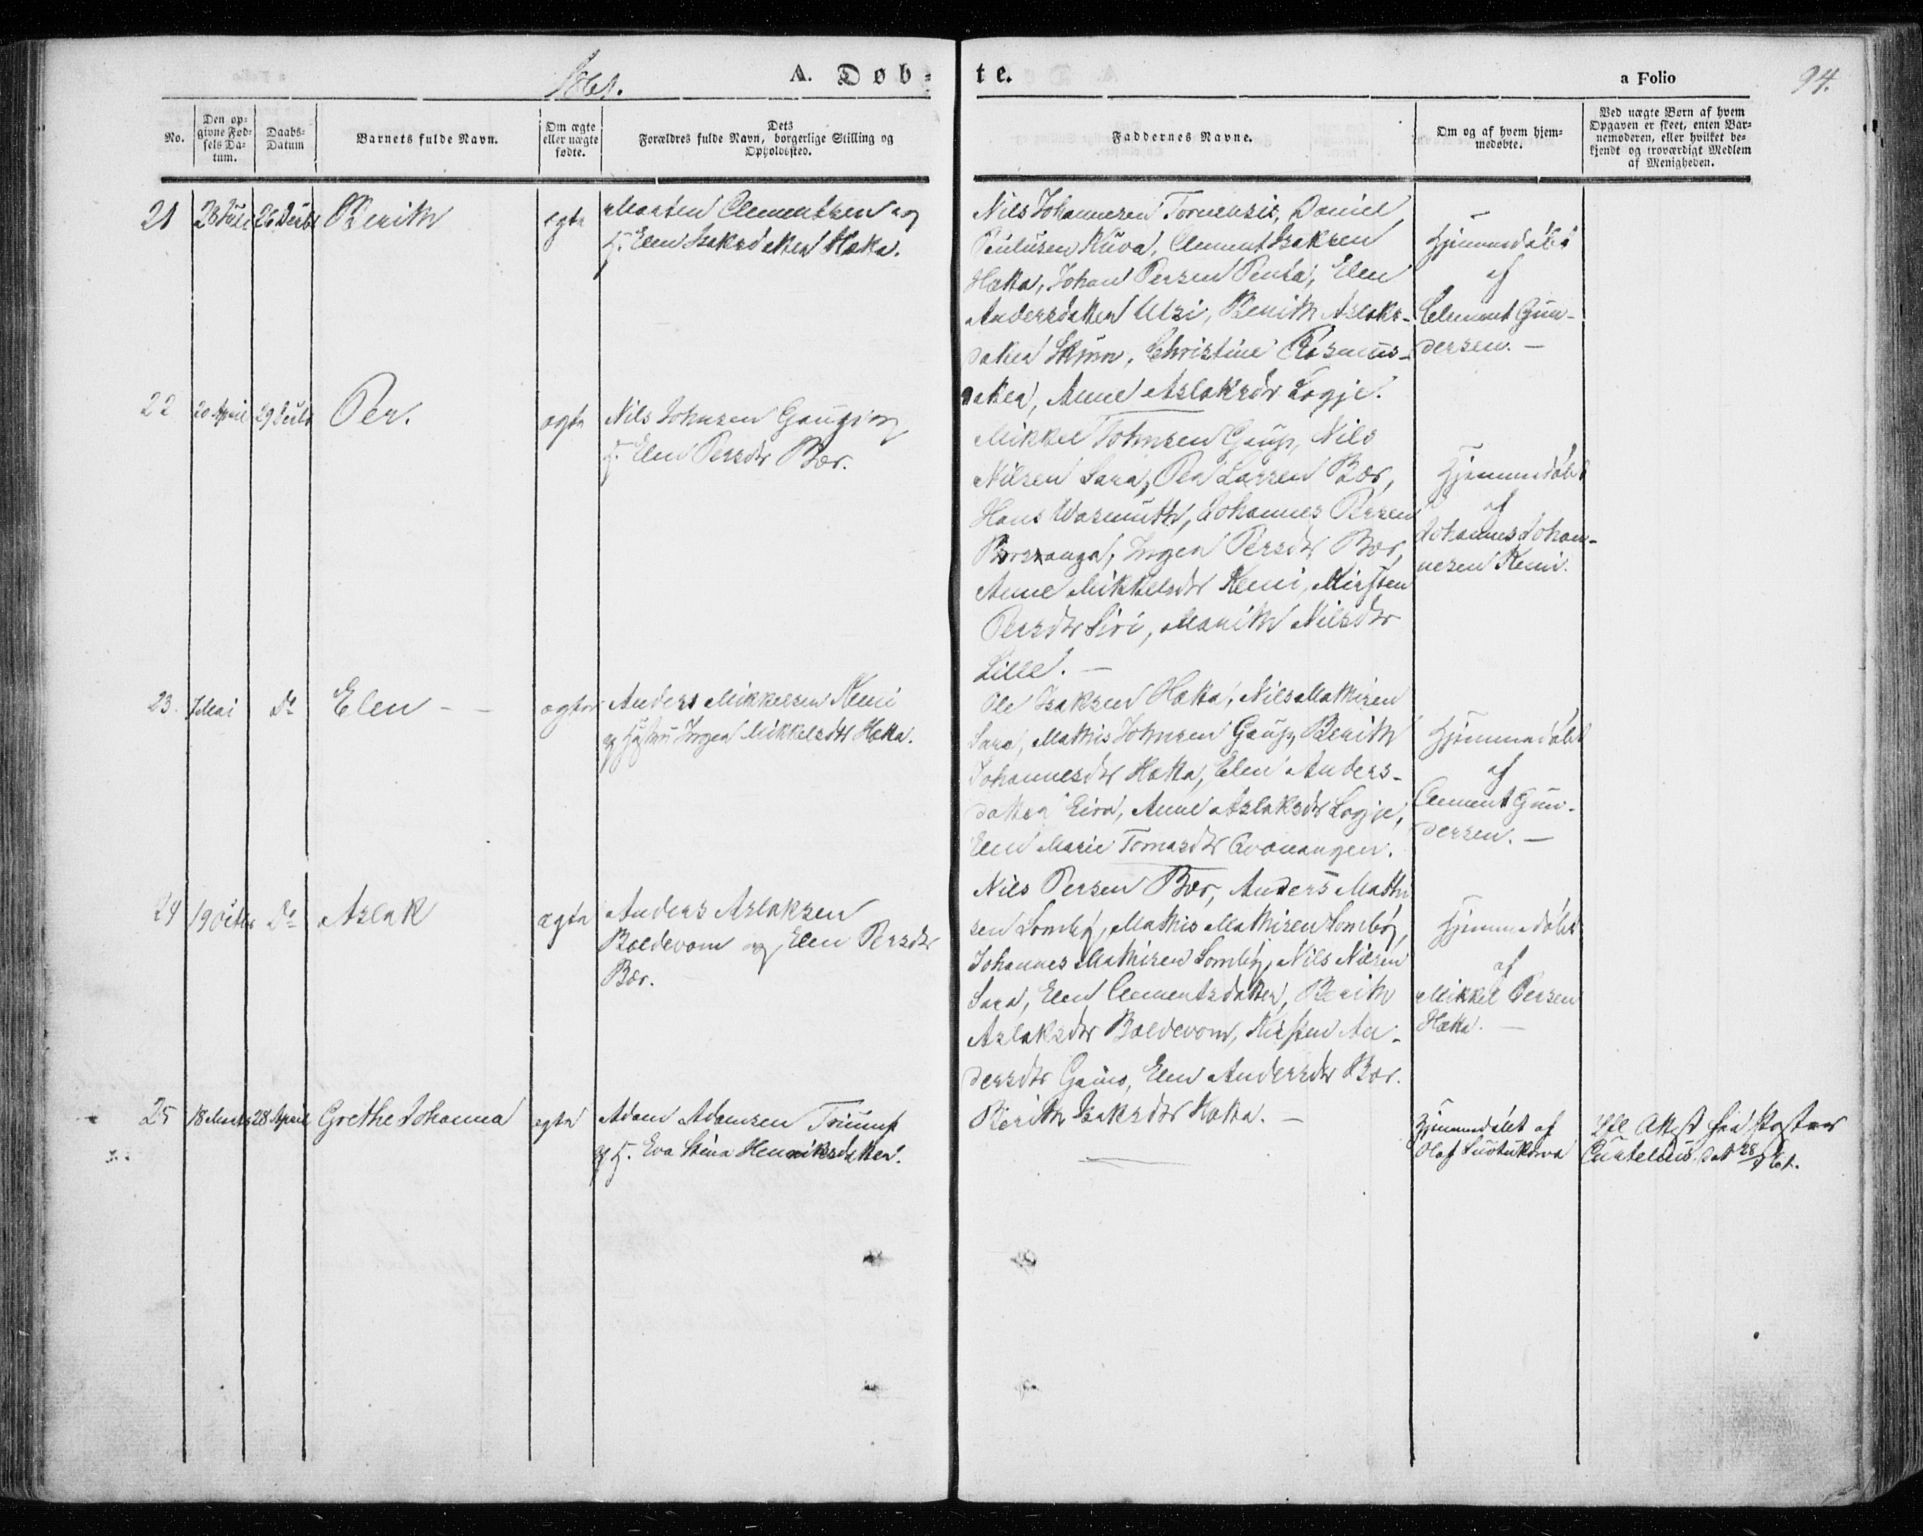 1861.
A. Døb-
te.
a Folio
94.
No.
Den op-
givne Fød-
sels Da-
tum.
Daabs-
Datum
Barnets fulde Navn.
Om ægte
eller uægte
fødte.
Dets
Forældres fulde Navn, borgerlige Stilling og
Opholdssted.
Faddernes Navne.
Om og af hvem hjem-
medøbte.
Ved uægte Børn af hvem
Opgaven er skeet, enten Bar-
nemoderen, eller hvilket be-
kjendt og troværdigt Medlem
af Menigheden.
21
Berith
egte
Morten Clementsen og
H. Elen Isaksdatter Hætta.
Nils Johannesen Tornensis, Daniel
Paulusen Kuva, Clement Isaksen
Hætta, Johan Persen Penta, Elen
Andersdatter Utsi, Berith Aslaks-
datter Skum, Christine Rasmus-
datter, Anne Aslaksdtr Logje.
Hjemmedøbt
af
Clement Gun-
dersen. —
22
20 April
29 Juli
Per.
ægte
Nils Johnsen Gaup og
H. Elen Persdtr Bær.
Mikkel Johnsen Gaup, Nils
Nilsen Sara, Per Larsen Bær,
Hans Wasmuth, Johannes Persen
Porsanga, Ingea Persdtr Bær,
Anne Mikkelsdtr Kemi, Kirsten
Persdtr Siri, Marith Nilsdtr
Lille. —
Hjemmedøbt
af
Johannes Johan-
nesen Kemi.
23.
7 Mai
Do
Elen - -
ægte
Anders Mikkelsen Kemi
og Hustru Ingea Mikkelsdtr Hætta.
Ole Isaksen Hætta, Nils Mathisen
Sara, Mathis Johnsen Gaup, Berith
Johannesdtr Hætta, Elen Anders-
datter Eira, Anne Aslaksdtr Logje,
Elen Marie Tomasdtr Qvænangen.
Hjemmedøbt
af
Clement Gun-
dersen. —
24
19 Octbr
Do
Aslak
ægte
Anders Aslaksen
Baldevom og Elen Persdtr
Bær.
Nils Persen Bær, Anders Mathi
sen Somby, Mathis Mathisen Somby,
Johannes Mathisen Somby, Nils Nilsen
Sara, Elen Clementsdatter, Berith
Aslaksdtr Baldevom, Kirsten An-
dersdtr Gaino, Elen Andersdtr Bær.
Berith Isaksdtr Hætta. —
Hjemmedøbt
af
Mikkel Persen
Hætta. —
25
18 Marts
28 April
Grethe Johanna
egte
Adam Adamsen Triumf
og H. Eva Stina Henriksdatter.
Hjemmedøbt af
Olaf
Attest fra Pastor